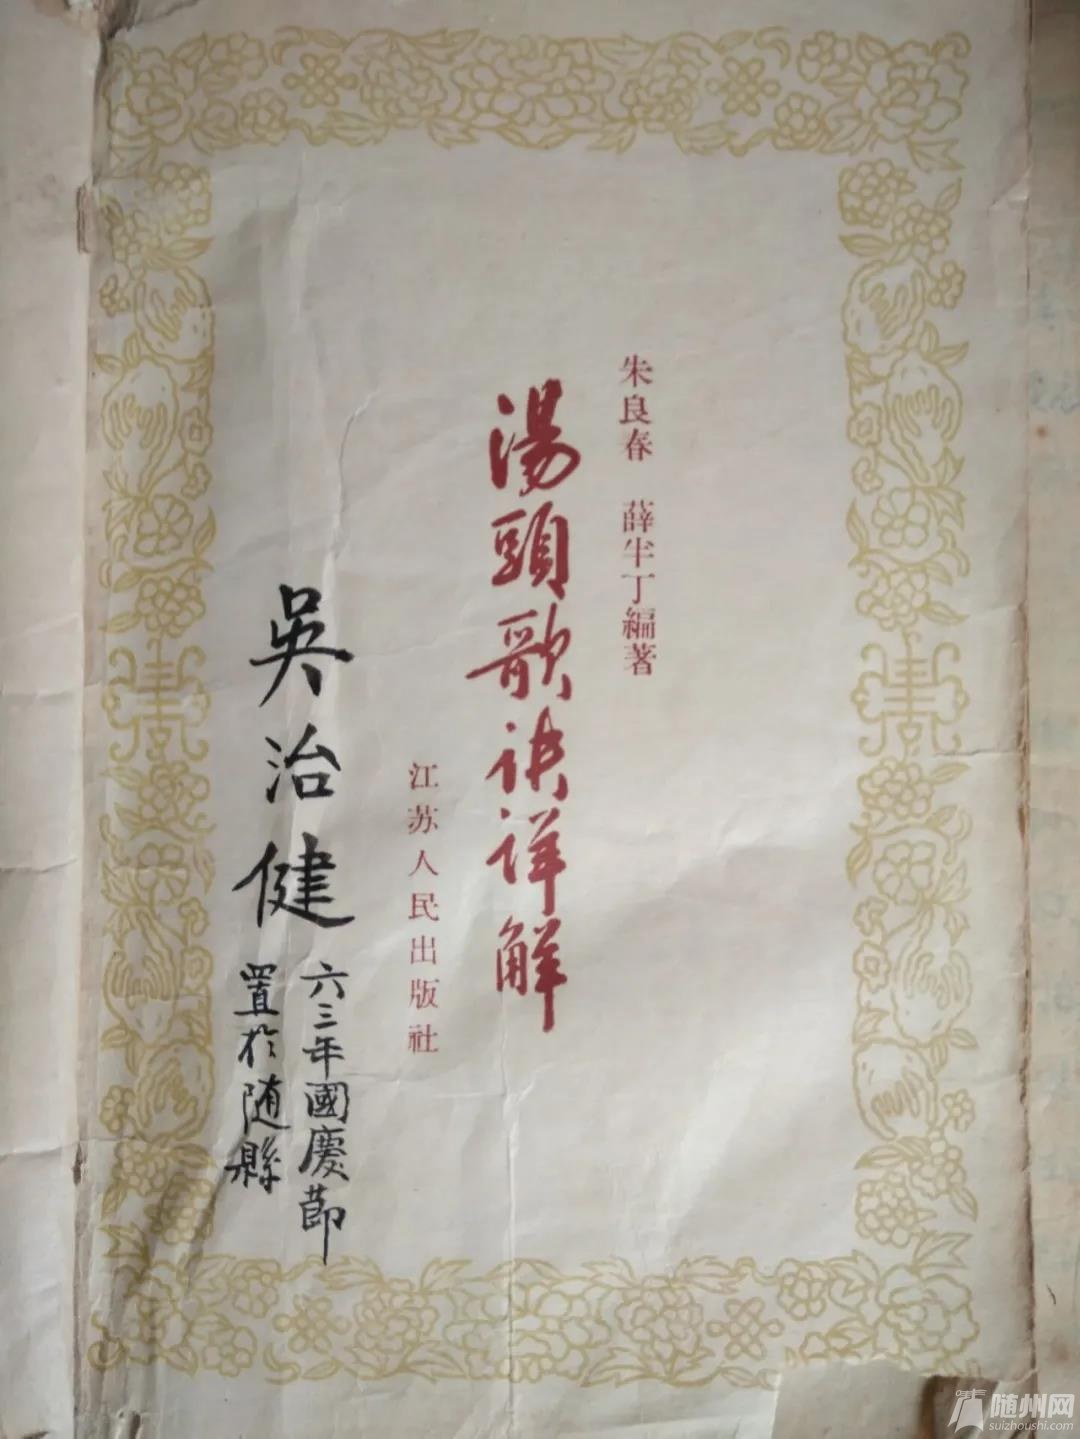 朱良春 薛半丁編著
湯頭歌诀详解
江苏人民出版社
吳治健
六三年國慶節
置於随縣
随州网
suizhoushi.com